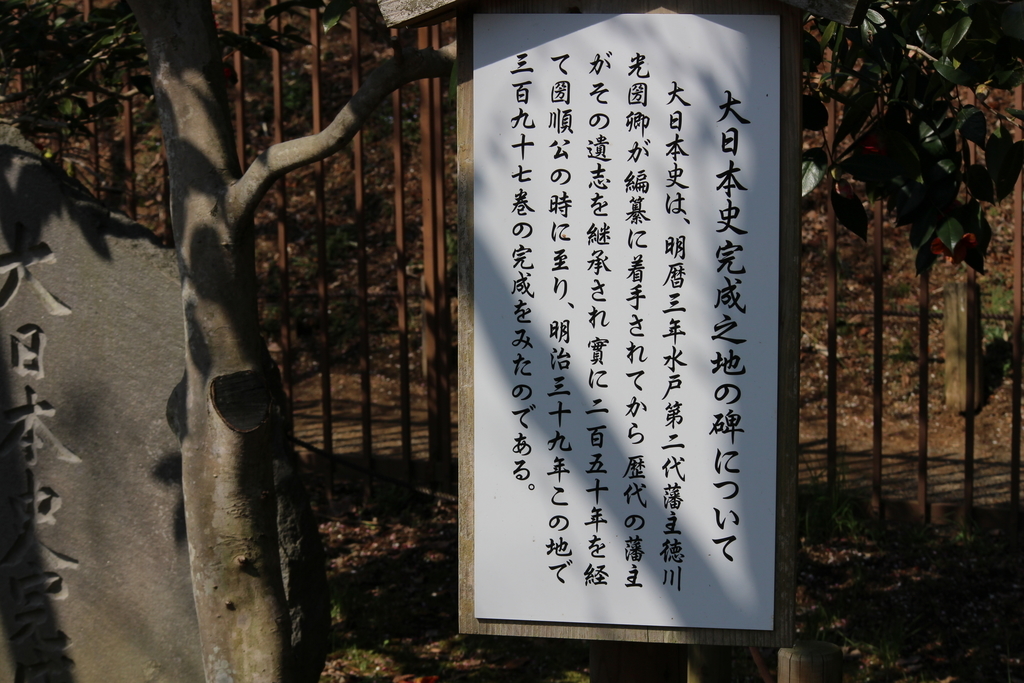 大日本史完成之地の碑について
大日本史は、明暦三年水戸第二代藩主徳川
光圀卿が編纂に着手されてから歴代の藩主
がその遺志を継承され實に二百五十年を経
て圀順公の時に至り、明治三十九年この地で
三百九十七巻の完成をみたのである。
大日本史完